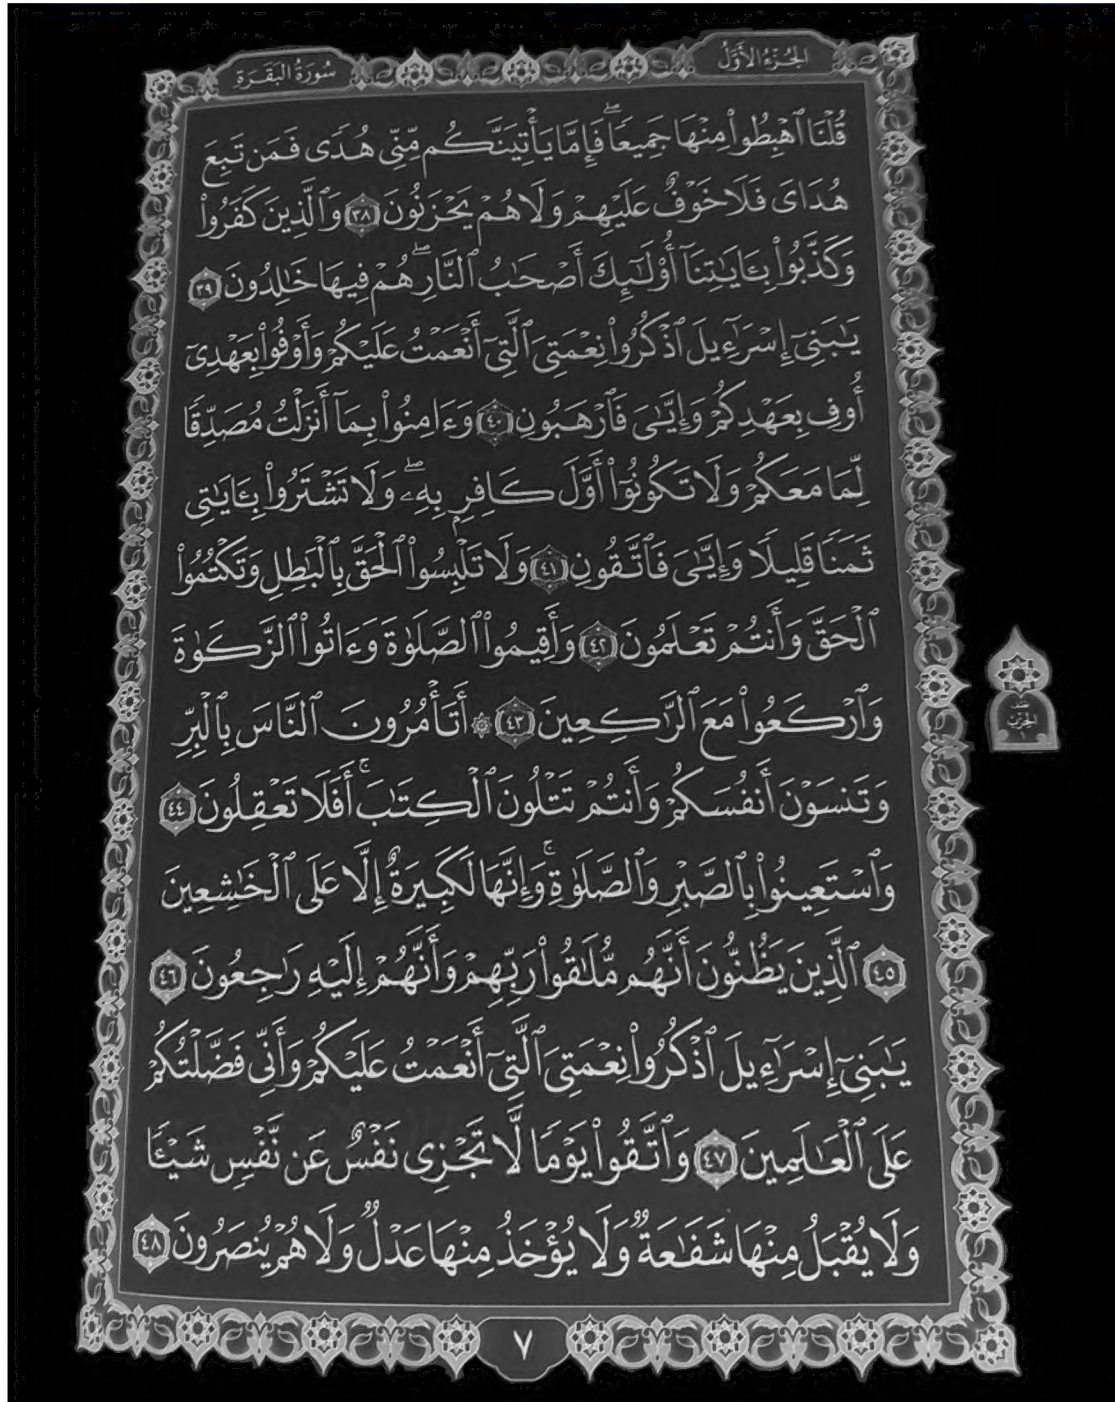 الجُزْءُ الأَوَّلُ
سُورَةُ البَقَرَةِ
قُلْنَا ٱهْبِطُوا۟ مِنْهَا جَمِيعًۭا ۖ فَإِمَّا يَأْتِيَنَّكُم مِّنِّى هُدًۭى فَمَن تَبِعَ
هُدَاىَ فَلَا خَوْفٌ عَلَيْهِمْ وَلَا هُمْ يَحْزَنُونَ ٣٨ وَٱلَّذِينَ كَفَرُوا۟
وَكَذَّبُوا۟ بِـَٔايَـٰتِنَآ أُو۟لَـٰٓئِكَ أَصْحَـٰبُ ٱلنَّارِ ۖ هُمْ فِيهَا خَـٰلِدُونَ ٣٩
يَـٰبَنِىٓ إِسْرَٰٓءِيلَ ٱذْكُرُوا۟ نِعْمَتِىَ ٱلَّتِىٓ أَنْعَمْتُ عَلَيْكُمْ وَأَوْفُوا۟ بِعَهْدِىٓ
أُوفِ بِعَهْدِكُمْ وَإِيَّـٰىَ فَٱرْهَبُونِ ٤٠ وَءَامِنُوا۟ بِمَآ أَنزَلْتُ مُصَدِّقًۭا
لِّمَا مَعَكُمْ وَلَا تَكُونُوٓا۟ أَوَّلَ كَافِرٍۭ بِهِۦ ۖ وَلَا تَشْتَرُوا۟ بِـَٔايَـٰتِى
ثَمَنًۭا قَلِيلًۭا وَإِيَّـٰىَ فَٱتَّقُونِ ٤١ وَلَا تَلْبِسُوا۟ ٱلْحَقَّ بِٱلْبَـٰطِلِ وَتَكْتُمُوا۟
ٱلْحَقَّ وَأَنتُمْ تَعْلَمُونَ ٤٢ وَأَقِيمُوا۟ ٱلصَّلَوٰةَ وَءَاتُوا۟ ٱلزَّكَوٰةَ
وَٱرْكَعُوا۟ مَعَ ٱلرَّٰكِعِينَ ٤٣ ۞ أَتَأْمُرُونَ ٱلنَّاسَ بِٱلْبِرِّ
وَتَنسَوْنَ أَنفُسَكُمْ وَأَنتُمْ تَتْلُونَ ٱلْكِتَـٰبَ ۚ أَفَلَا تَعْقِلُونَ ٤٤
وَٱسْتَعِينُوا۟ بِٱلصَّبْرِ وَٱلصَّلَوٰةِ ۚ وَإِنَّهَا لَكَبِيرَةٌ إِلَّا عَلَى ٱلْخَـٰشِعِينَ
٤٥ ٱلَّذِينَ يَظُنُّونَ أَنَّهُم مُّلَـٰقُوا۟ رَبِّهِمْ وَأَنَّهُمْ إِلَيْهِ رَٰجِعُونَ ٤٦
يَـٰبَنِىٓ إِسْرَٰٓءِيلَ ٱذْكُرُوا۟ نِعْمَتِىَ ٱلَّتِىٓ أَنْعَمْتُ عَلَيْكُمْ وَأَنِّى فَضَّلْتُكُمْ
عَلَى ٱلْعَـٰلَمِينَ ٤٧ وَٱتَّقُوا۟ يَوْمًۭا لَّا تَجْزِى نَفْسٌ عَن نَّفْسٍۢ شَيْـًۭٔا
وَلَا يُقْبَلُ مِنْهَا شَفَـٰعَةٌۭ وَلَا يُؤْخَذُ مِنْهَا عَدْلٌۭ وَلَا هُمْ يُنصَرُونَ ٤٨
نصف
الحزب
١
٧